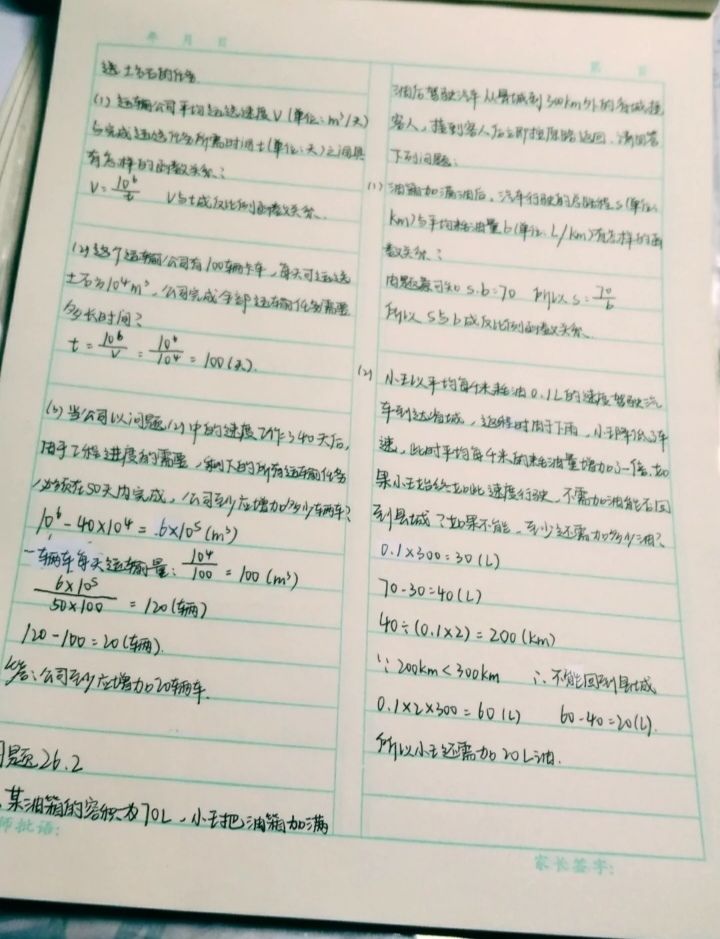 年 月 日
送土石的任务.
(1) 运输公司平均运送速度V(单位:m³/天)
与完成运送任务所需时间t(单位:天)之间具
有怎样的函数关系?
V=10⁶/t V与t成反比例函数关系.
(2) 这个运输公司有100辆卡车,每天可运送
土石方10⁴m³,公司完成全部运输任务需要
多长时间?
t=10⁶/V=10⁶/10⁴=100(天).
(3) 当公司以问题(2)中的速度工作了40天后,
由于工程进度的需要,剩下的所有运输任务
必须在50天内完成,公司至少应增加多少辆车?
10⁶-40×10⁴=6×10⁵(m³)
一辆车每天运输量:10⁴/100=100(m³)
6×10⁵/50×100=120(辆)
120-100=20(辆).
答:公司至少应增加20辆车.
习题26.2
某油箱的容积为70L,小王把油箱加满
师批语:
油后驾驶汽车从县城到300km外的省城接
客人,接到客人后立即按原路返回.请回答
下列问题:
(1) 油箱加满油后,汽车行驶的总路程s(单位:
km)与平均耗油量b(单位:L/km)有怎样的函
数关系?
由题意可知s·b=70 所以s=70/b
所以s与b成反比例函数关系.
(2) 小王以平均每千米耗油0.1L的速度驾驶汽
车到达省城,返程时由于下雨,小王降低了车
速,此时平均每千米的耗油量增加了一倍.如
果小王始终以此速度行驶,不需加油能否回
到县城?如果不能,至少还需加多少油?
0.1×300=30(L)
70-30=40(L)
40÷(0.1×2)=200(km)
∵200km<300km ∴不能回到县城
0.1×2×300=60(L) 60-40=20(L).
所以小王还需加20L油.
家长签字: